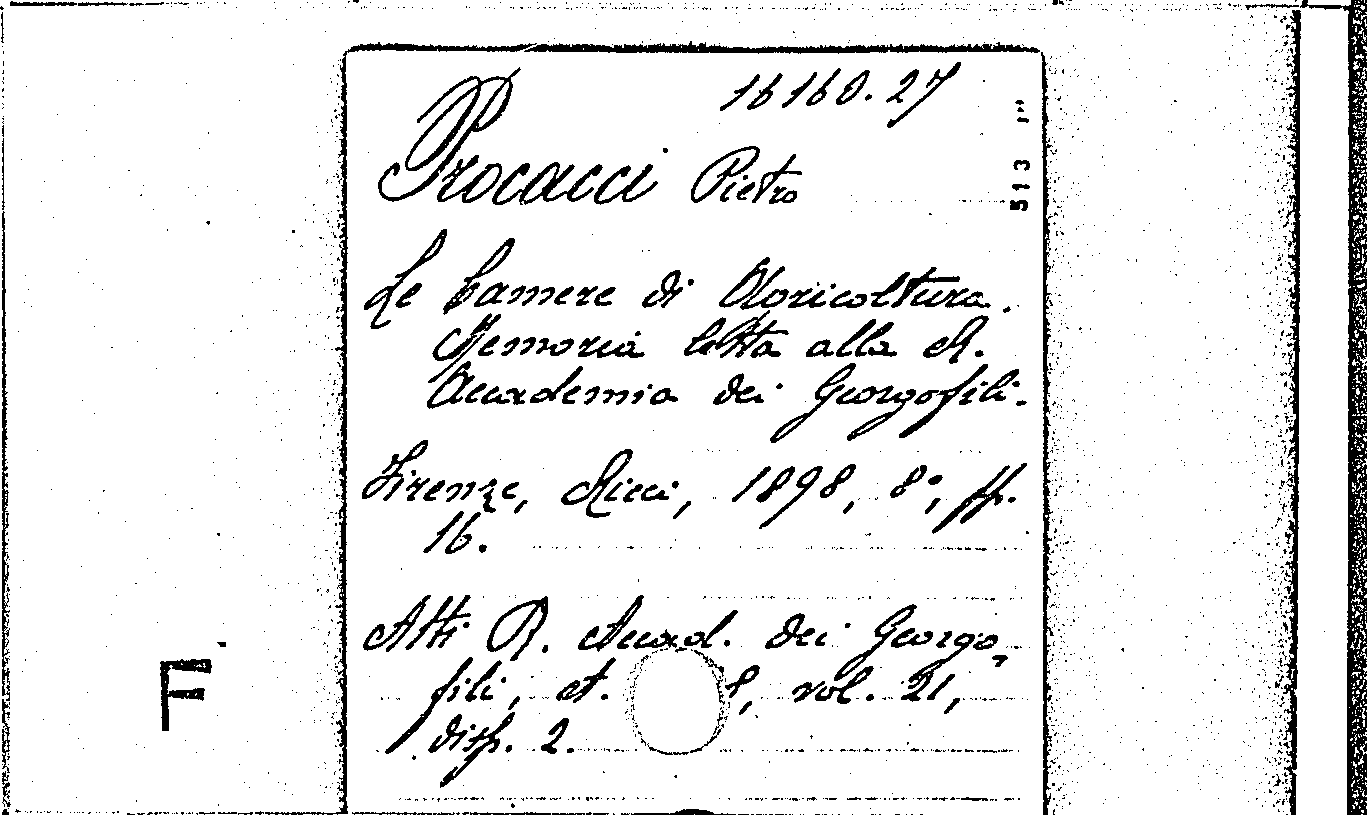 16160.27
Procacci Pietro
513
Le Camere di Agricoltura.
Memoria letta alla R.
Accademia dei Georgofili.
Firenze, Ricci, 1898, 8°, pp.
16.
Atti R. Accad. dei Georgo-
fili, A. 8, vol. 21,
disp. 2.
F